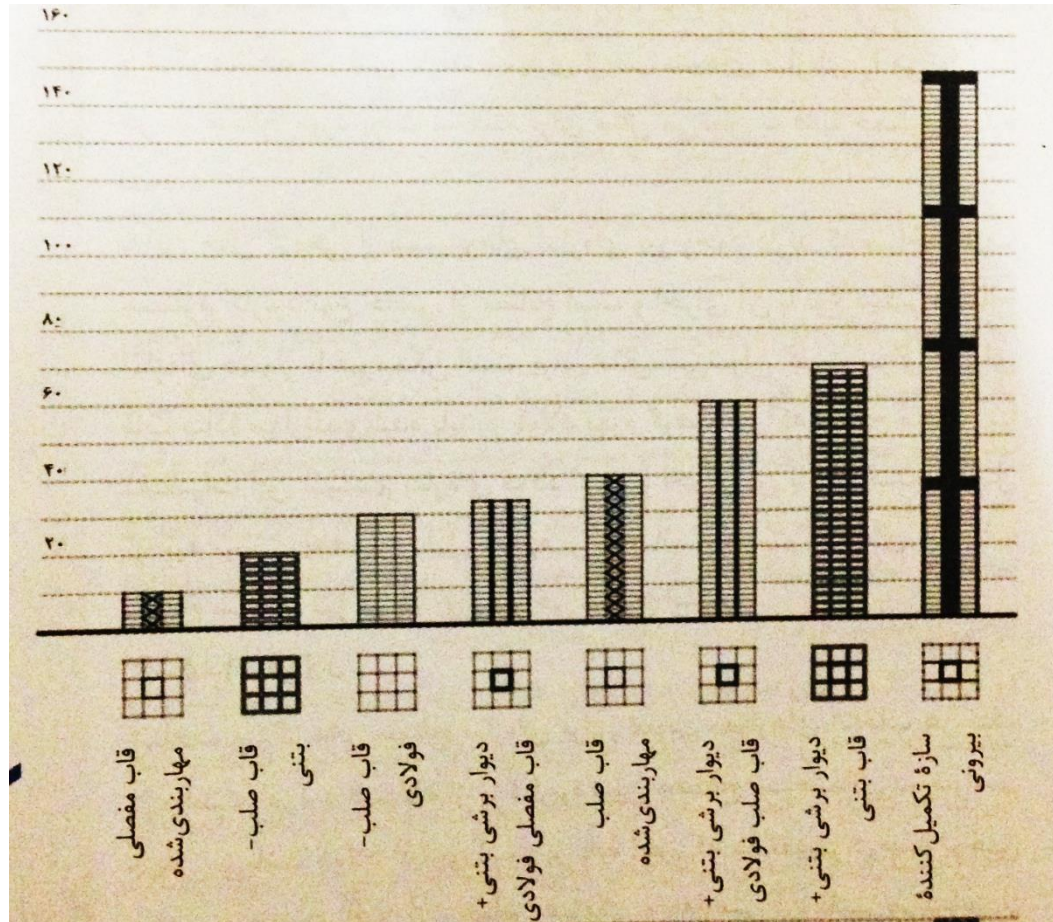 ۱۶۰
۱۴۰
۱۲۰
۱۰۰
۸۰
۶۰
۴۰
۲۰
قاب مفصلی
مهاربندی‌شده
قاب صلب-
بتنی
قاب صلب-
فولادی
دیوار برشی بتنی+
قاب مفصلی فولادی
قاب صلب
مهاربندی‌شده
دیوار برشی بتنی+
قاب صلب فولادی
دیوار برشی بتنی+
قاب بتنی
سازهٔ تکمیل‌کنندهٔ
بیرونی